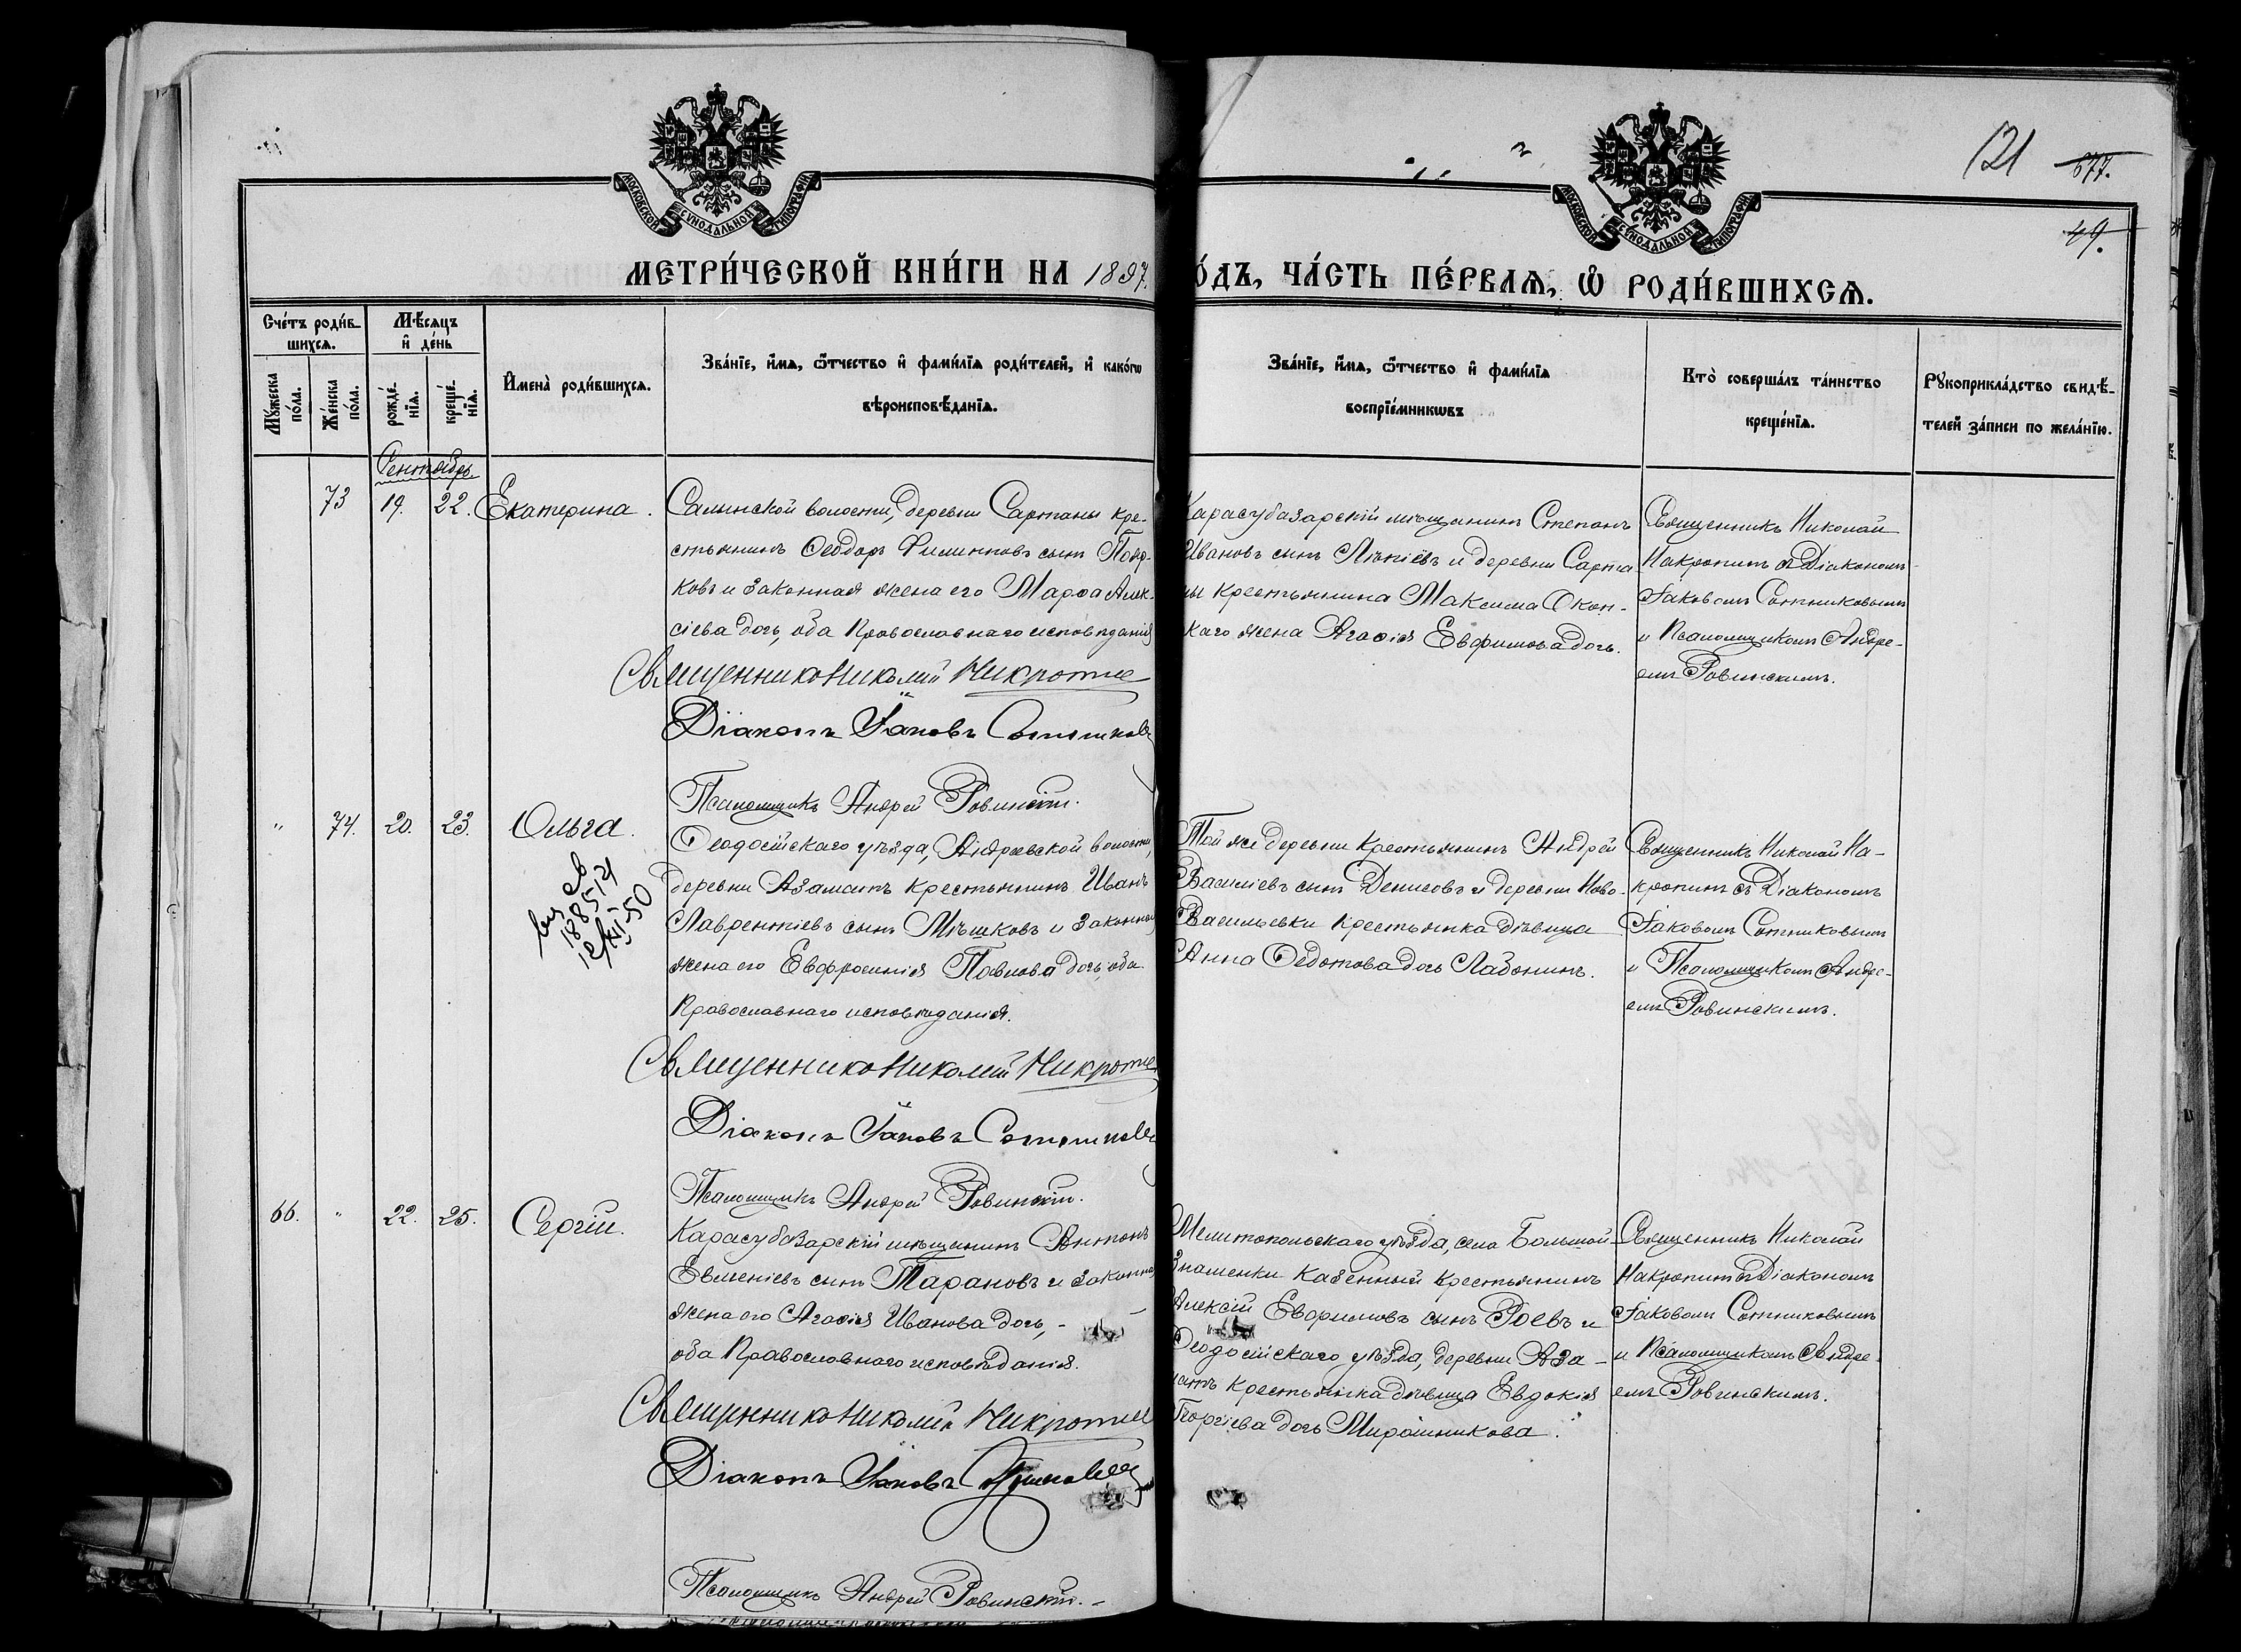 121
677.
49.
МОСКОВСКОЙ СѴНОДАЛЬНОЙ ТИПОГРАФИИ
МОСКОВСКОЙ СѴНОДАЛЬНОЙ ТИПОГРАФИИ
МЕТРИ́ЧЕСКОЙ КНИ́ГИ НА 1897.
О́ДЪ, ЧА́СТЬ ПЕ́РВАѦ, Ѡ҆ РОДИ́ВШИХСѦ.
Сче́тъ роди́в-
шихсѧ.
Мꙋ́жеска
по́ла.
Же́нска
по́ла.
Мѣ́сѧцъ
и҆ де́нь
рожде́-
нїѧ.
креще́-
нїѧ.
И҆мена̀ роди́вшихсѧ.
Зва́нїе, и҆́мѧ, ѻ҆́тчество и҆ фами́лїѧ роди́телей, и҆ како́гѡ
вѣроисповѣ́данїѧ.
Зва́нїе, и҆́мѧ, ѻ҆́тчество и҆ фами́лїѧ
воспрїе́мникѡвъ
Кто̀ соверша́лъ та́инство
креще́нїѧ.
Рꙋкоприкла́дство свидѣ́-
телей за́писи по жела́нїю.
Сентябрь
73 19. 22. Екатерина.
Салынской волости, деревни Сартаны кре-
стьянинъ Ѳеодоръ Филипповъ сынъ
ковъ и законная жена его Марѳа Алек-
сіева дочь, оба Православнаго исповѣданія
Священникъ Николай
Діаконъ Іаковъ Сотников
Псаломщикъ Андрей Ровинскій.
Карасубазарскій мѣщанинъ Степанъ
Ивановъ сынъ и деревни Сарта-
ны крестьянина Максима Окон-
скаго жена Агаѳія Евфимова дочь.
Священникъ Николай
Накропинъ съ Діакономъ
Іаковомъ Сотниковымъ
и Псаломщикомъ Андре-
емъ Ровинскимъ.
" 74. 20. 23. Ольга.
1885/4
12/XI-50
Ѳеодосійскаго уѣзда, Андреевской волости,
деревни Азаматъ крестьянинъ Иванъ
Лаврентіевъ сынъ Мѣшковъ и законная
жена его Евфросинія Павлова дочь, оба
Православнаго исповѣданія.
Священникъ Николай
Діаконъ Іаковъ Сотников
Псаломщикъ Андрей Ровинскій.
Той же деревни крестьянинъ Андрей
Василіевъ сынъ Денисовъ и деревни Ново-
Васильевки крестьянка дѣвица
Анна Ѳедотова дочь Лабонинъ.
Священникъ Николай На-
кропинъ съ Діакономъ
Іаковомъ Сотниковымъ
и Псаломщикомъ Андре-
емъ Ровинскимъ.
66. " 22. 25. Сергій.
Карасубазарскій мѣщанинъ Антонъ
Евменіевъ сынъ Тарановъ и законная
жена его Агаѳія Иванова дочь, -
оба Православнаго исповѣданія.
Священникъ Николай
Діаконъ Іаковъ
Псаломщикъ Андрей Ровинскій. -
Мелитопольскаго уѣзда, села Большой
Знаменки казенный крестьянинъ
Алексій Евфимовъ сынъ Роевъ и
Ѳеодосійскаго уѣзда, деревни Аза-
матъ крестьянка дѣвица Евдокія
Георгіева дочь Мирошникова.
Священникъ Николай
Накропинъ съ Діакономъ
Іаковомъ Сотниковымъ
и Псаломщикомъ Андре-
емъ Ровинскимъ.